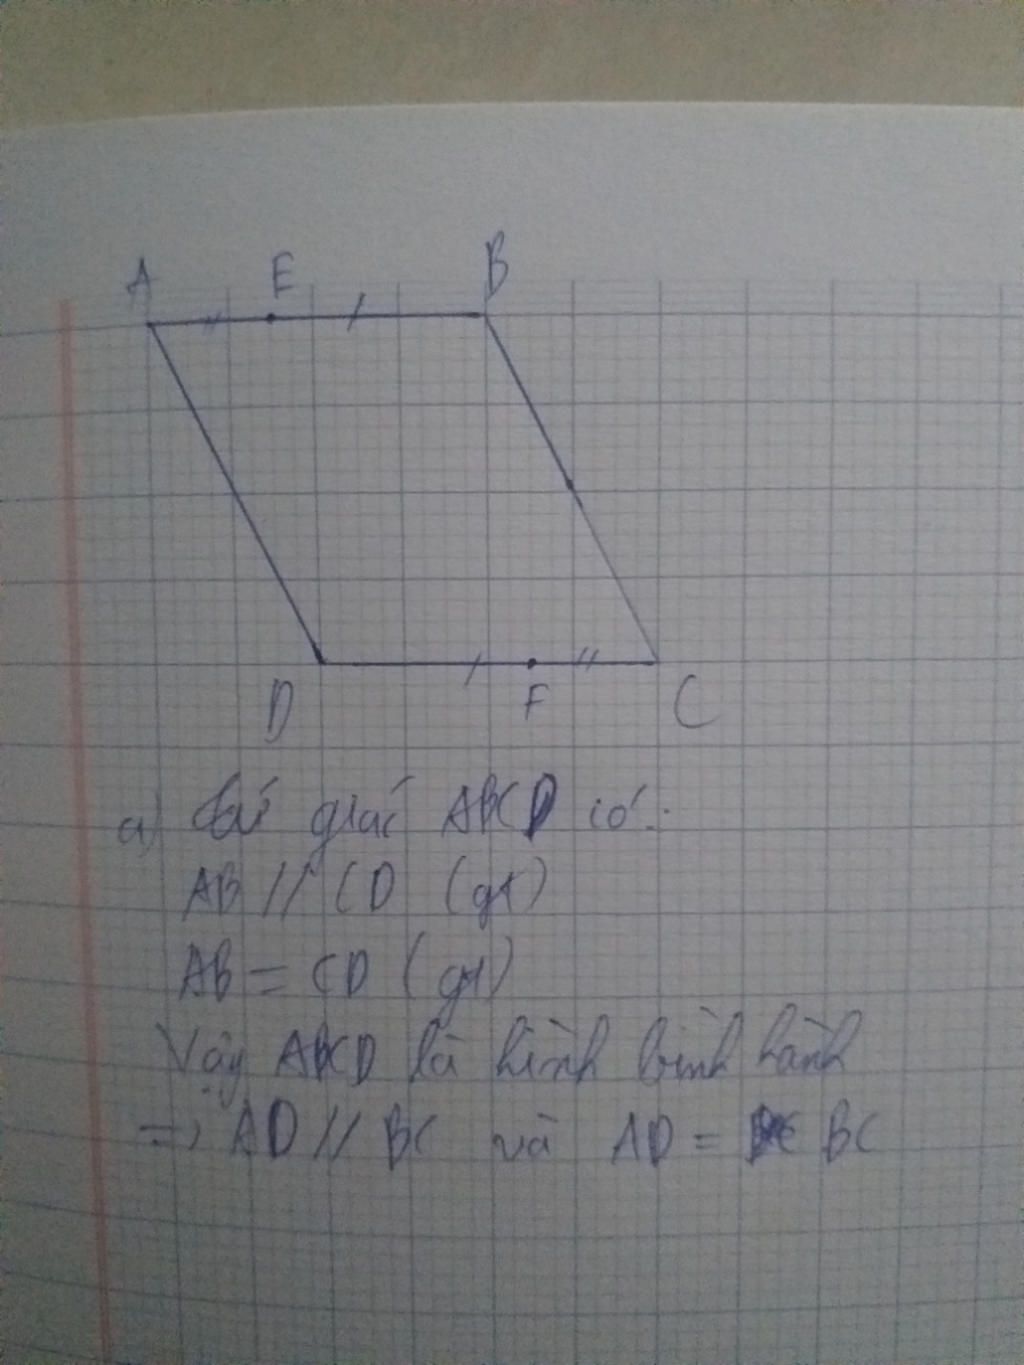 A E B
D F C
a) Tứ giác ABCD có:
AB // CD (gt)
AB = CD (gt)
Vậy ABCD là hình bình hành
=> AD // BC và AD = BC